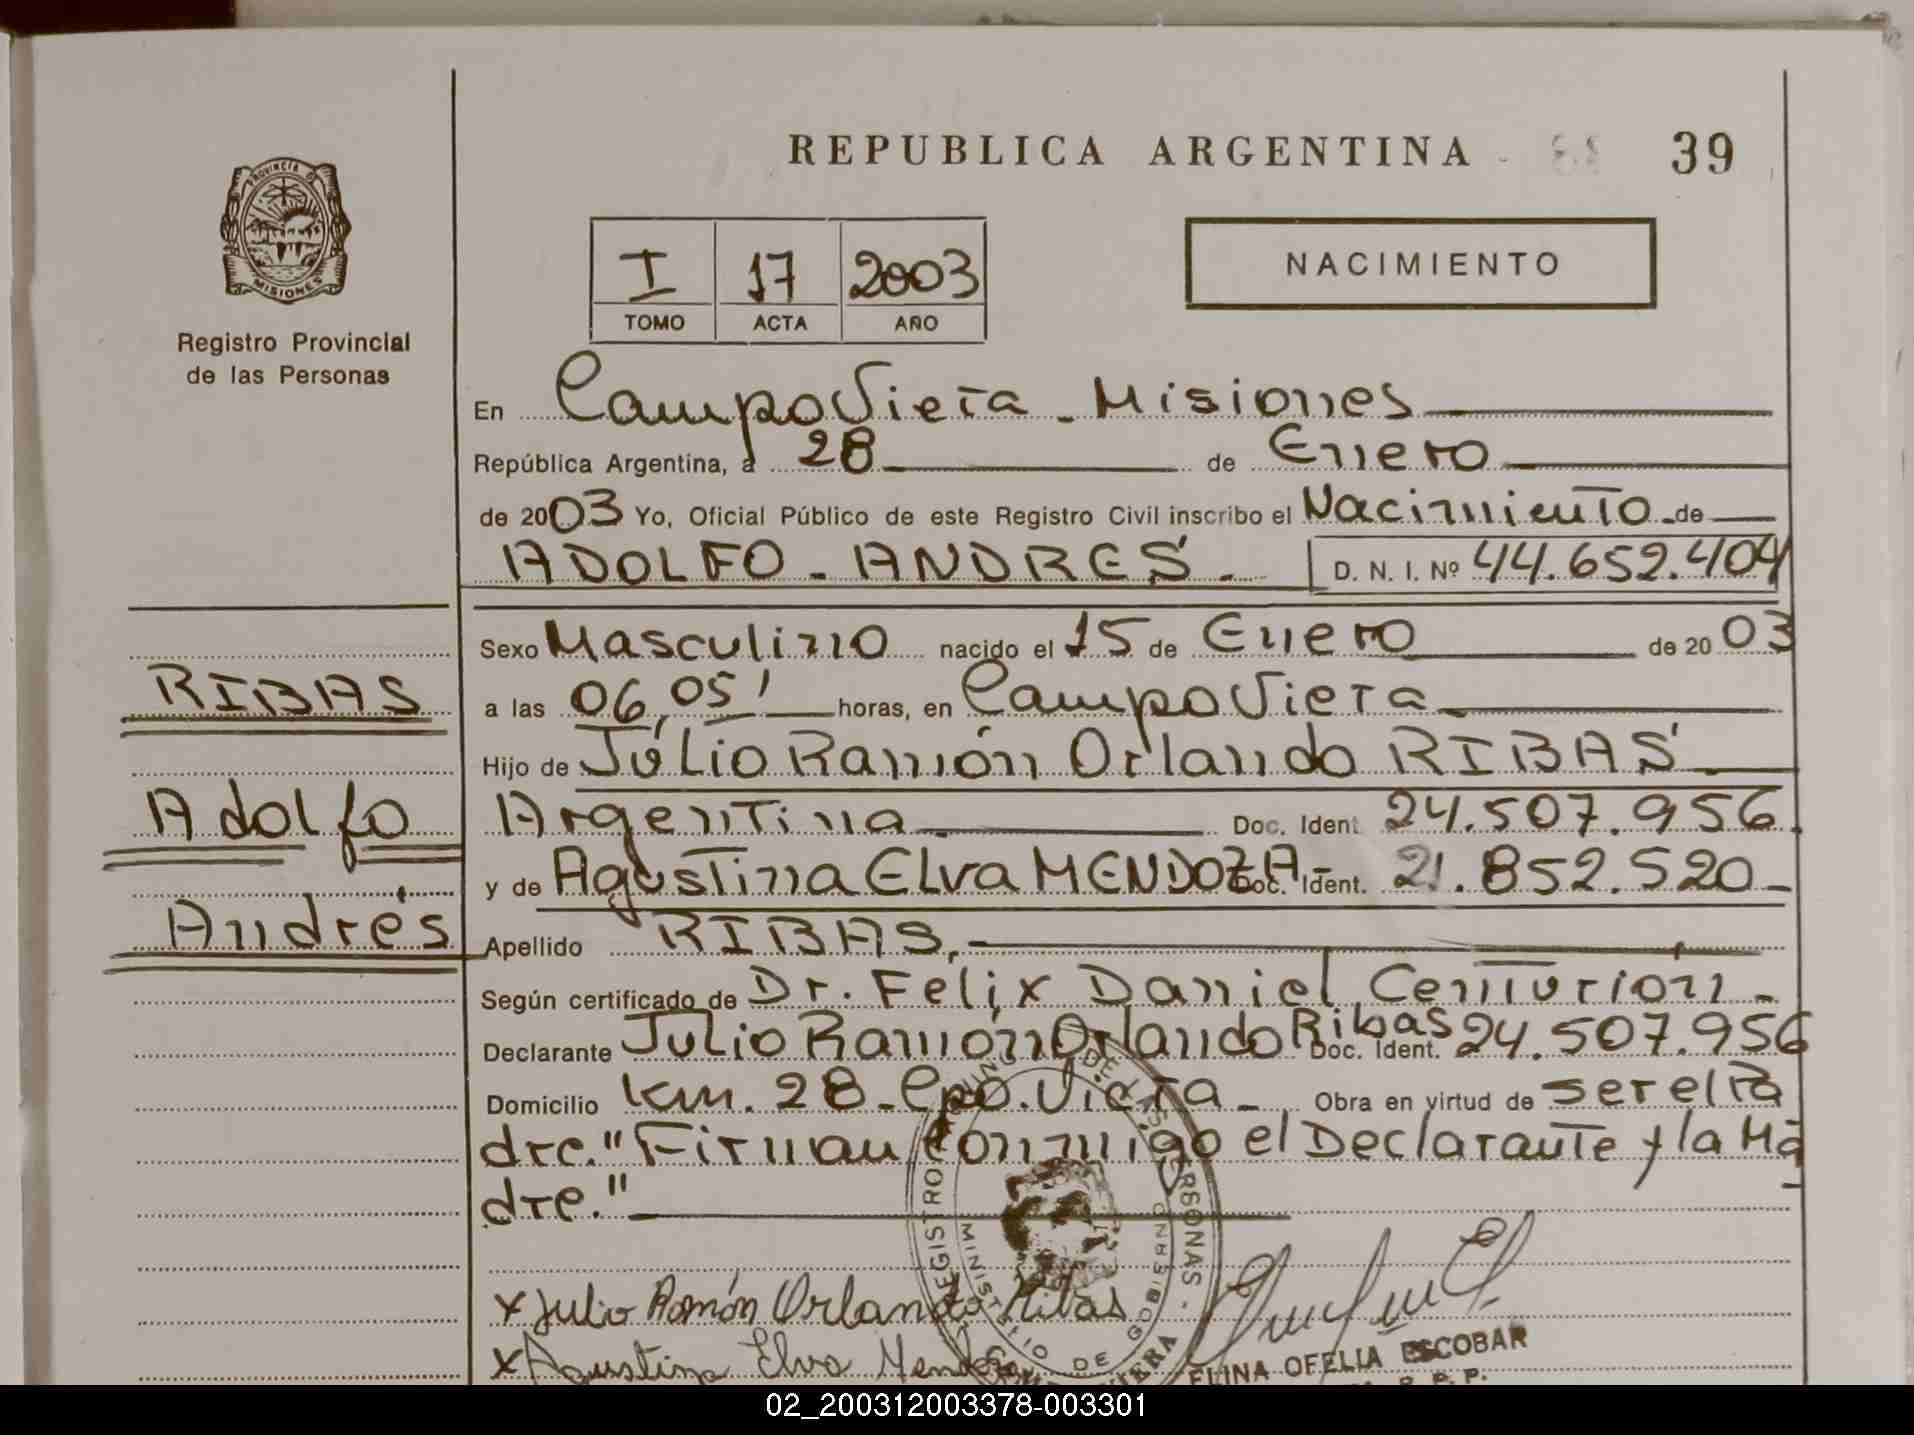 REPUBLICA ARGENTINA
39
PROVINCIA D
MISIONES
Registro Provincial
de las Personas
I 17 2003
TOMO ACTA AÑO
NACIMIENTO
En Campo Viera - Misiones
República Argentina, a 28 de Enero
de 2003 Yo, Oficial Público de este Registro Civil inscribo el Nacimiento de
ADOLFO - ANDRES - D. N. I. Nº 44.652.404
Sexo Masculino nacido el 15 de Enero de 20 03
RIBAS
a las 06,05' horas, en Campo Viera
Hijo de Júlio Ramón Orlando RIBAS
Adolfo
Argentina Doc. Ident 24.507.956
y de Agustina Elva MENDOZA - Doc. Ident. 21.852.520 -
Andrés
Apellido RIBAS,
Según certificado de Dr. Felix Daniel Centurión -
Declarante Julio Ramón Orlando Ribas Doc. Ident. 24.507.956
Domicilio Km. 28 - Cpo. Viera - Obra en virtud de ser el Pa
dre." Firman Conmigo el Declarante y la Ma
dre."
REGISTRO DE LAS PERSONAS
MINISTERIO DE GOBIERNO
x Julio Ramón Orlando Ribas
x Agustina Elva Mendoza
ELINA OFELIA ESCOBAR
02_200312003378-003301